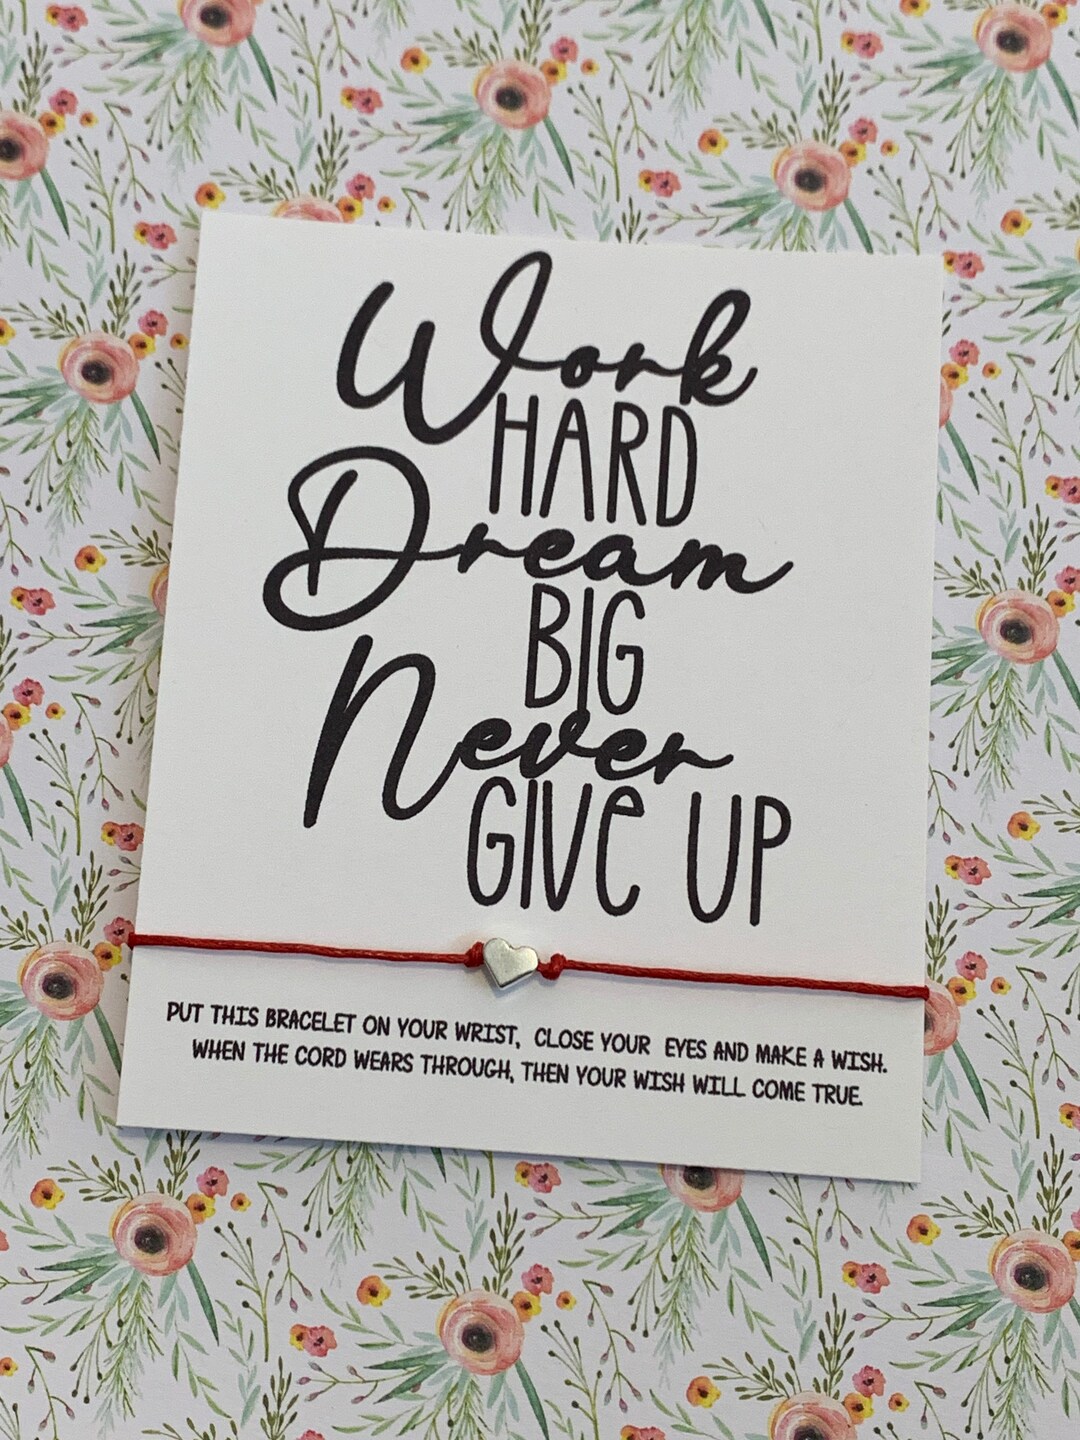 Work
HARD
Dream
BIG
Never
GIVE UP
PUT THIS BRACELET ON YOUR WRIST, CLOSE YOUR EYES AND MAKE A WISH.
WHEN THE CORD WEARS THROUGH, THEN YOUR WISH WILL COME TRUE.